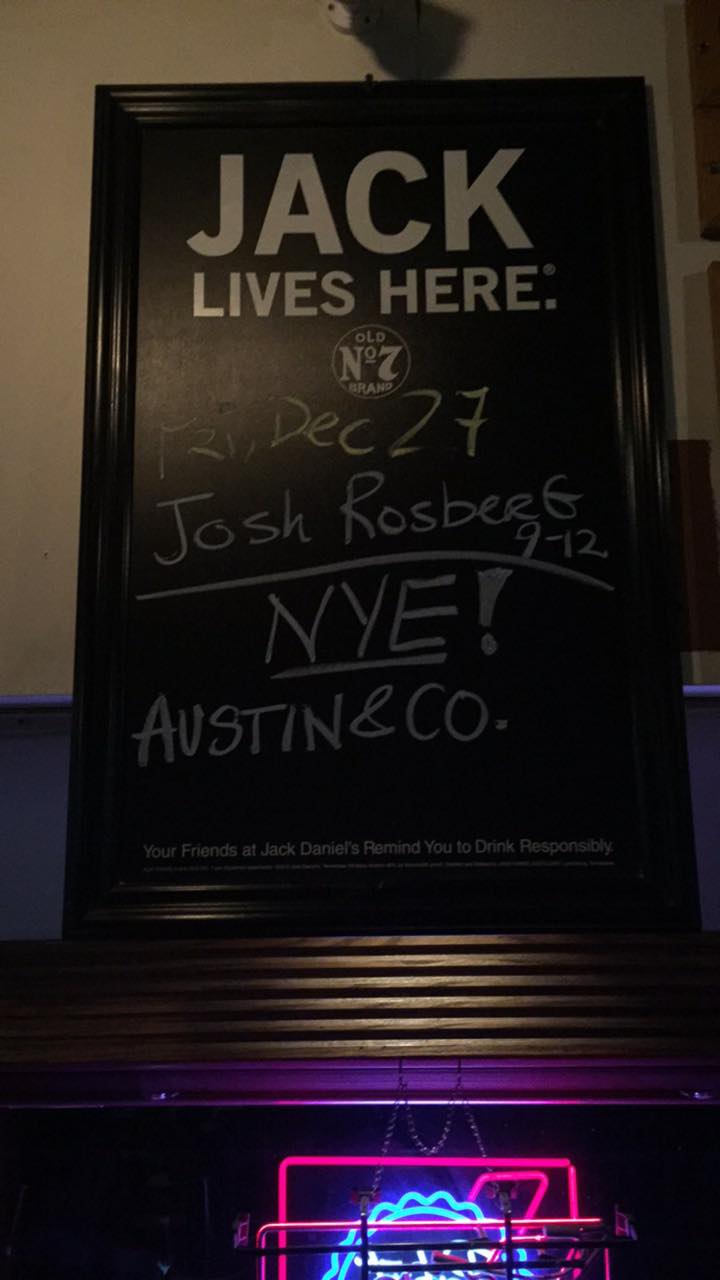 JACK
LIVES HERE.®
OLD
Nº7
BRAND
Fri, Dec 27
Josh RosbeRG
9-12
NYE!
AUSTIN & CO.
Your Friends at Jack Daniel's Remind You to Drink Responsibly.